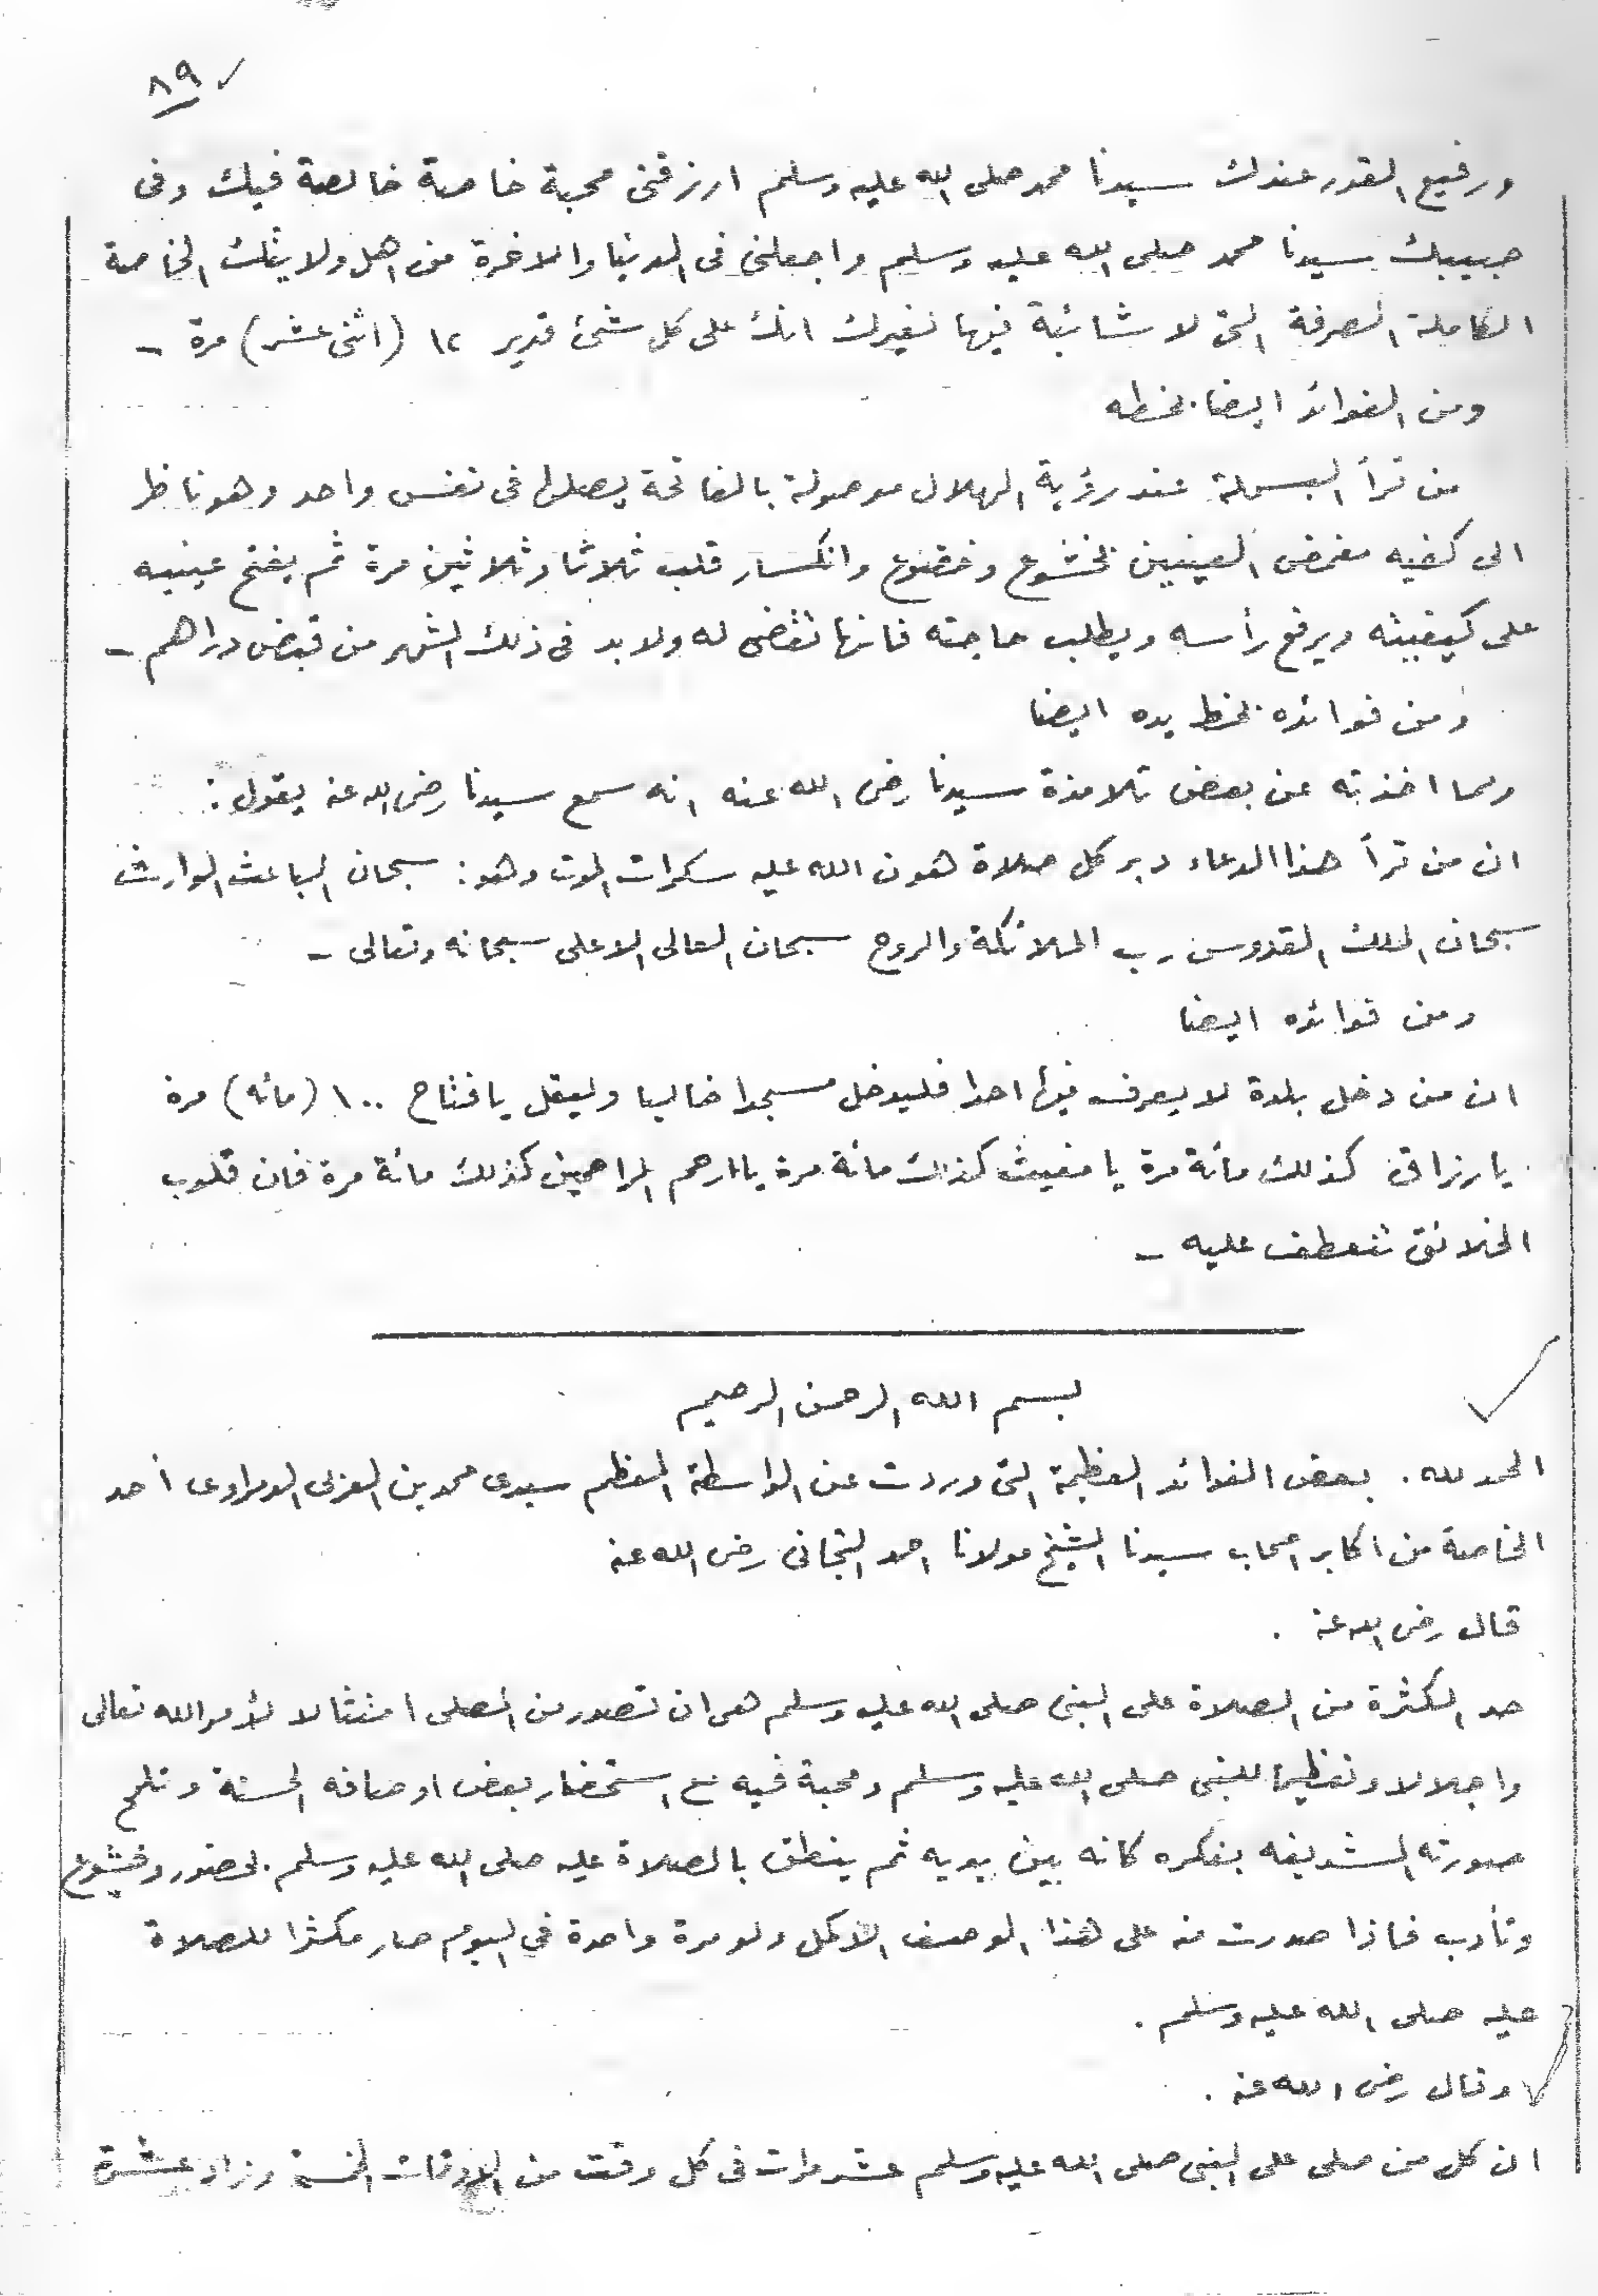 ٨٩
ورفيع القدر عندك سيدنا محمد صلى الله عليه وسلم ارزقنى محبة خاصة خالصة فيك وفى
حبيبك سيدنا محمد صلى الله عليه وسلم واجعلنى فى الدنيا والاخرة من اهل ولايتك الخاصة
الكاملة الصرفة التى لا شائبة فيها لغيرك انك على كل شئ قدير ١٢ (اثنى عشر) مرة -
ومن الفوائد ايضا بخطه
من قرأ البسملة عند رؤية الهلال موصولة بالفاتحة يصلها فى نفس واحد وهو ناظر
الى كفيه مغمض العينين بخشوع وخضوع وانكسار قلب ثلاثا وثلاثين مرة ثم يفتح عينيه
على كيفيته ويرفع رأسه ويطلب حاجته فانها تقضى له ولابد فى ذلك الشهر من قبض دراهم -
ومن فوائده بخط يده ايضا
ومما اخذته عن بعض تلامذة سيدنا رضى الله عنه انه سمع سيدنا رضى الله عنه يقول :
ان من قرأ هذا الدعاء دبر كل صلاة هون الله عليه سكرات الموت وهو : سبحان الباعث الوارث
سبحان الملك القدوس رب الملائكة والروح سبحان العالى الاعلى سبحانه وتعالى -
ومن فوائده ايضا
ان من دخل بلدة لا يعرف فيها احدا فليدخل مسجدا خاليا وليقل يا فتاح ١٠٠ (مائه) مرة
يا رزاق كذلك مائة مرة يا مغيث كذلك مائة مرة يا ارحم الراحمين كذلك مائة مرة فان قلوب
الخلائق تنعطف عليه -
بسم الله الرحمن الرحيم
الحمد لله . بعض الفوائد العظيمة التى وردت عن الواسطة المعظم سيدى محمد بن العربى الدمراوى أحد
الخاصة من اكابر اصحاب سيدنا الشيخ مولانا احمد التجانى رضى الله عنه
قال رضى الله عنه .
حد الكثرة من الصلاة على النبى صلى الله عليه وسلم هى ان تصدر من المصلى امتثالا لأمر الله تعالى
واجلالا وتعظيما للنبى صلى الله عليه وسلم ومحبة فيه مع استحضار بعض اوصافه الحسنة وتلمح
صورته الشريفه بفكره كانه بين يديه ثم ينطق بالصلاة عليه صلى الله عليه وسلم بحضور وخشوع
وتأدب فاذا صدرت منه على هذا الوصف الأكمل ولو مرة واحدة في اليوم صار مكثرا للصلاة
عليه صلى الله عليه وسلم .
وقال رضى الله عنه .
ان كل من صلى على النبى صلى الله عليه وسلم عشر مرات فى كل وقت من الاوقات الخمسة وزاد عشرة